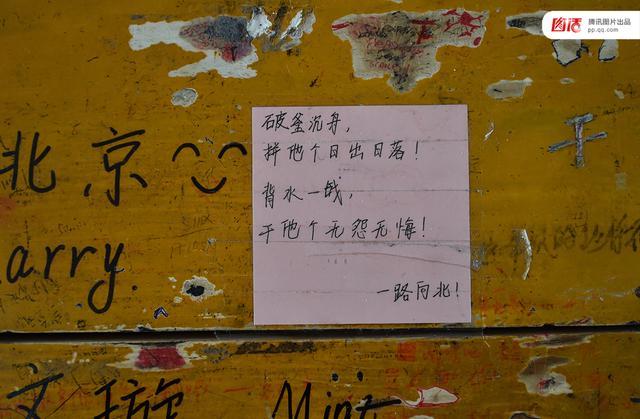 图话
腾讯图片出品
pp.qq.com
破釜沉舟,
拼他个日出日落!
背水一战,
干他个无怨无悔!
一路向北!
北京
干
arry.
文璇
Mint